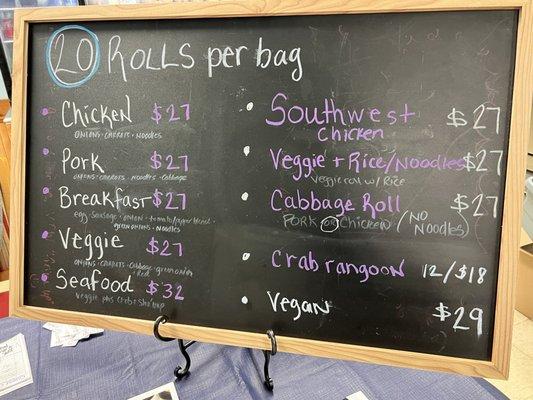 20 ROLLS per bag
Chicken $27
ONIONS - CARROTS - NOODLES
Pork $27
ONIONS - CARROTS - NOODLES - CABBAGE
Breakfast $27
egg - Sausage - onion - tomato/pepper blend -
green onions - noodles
Veggie $27
ONIONS - CARROTS - Cabbage - green onion
Seafood $32
Veggie plus Crab + Shrimp
Southwest $27
Chicken
Veggie + Rice/Noodles $27
Veggie roll w/ Rice
Cabbage Roll $27
PORK OR CHICKEN (NO
NOODLES)
Crab rangoon 12/$18
Vegan $29